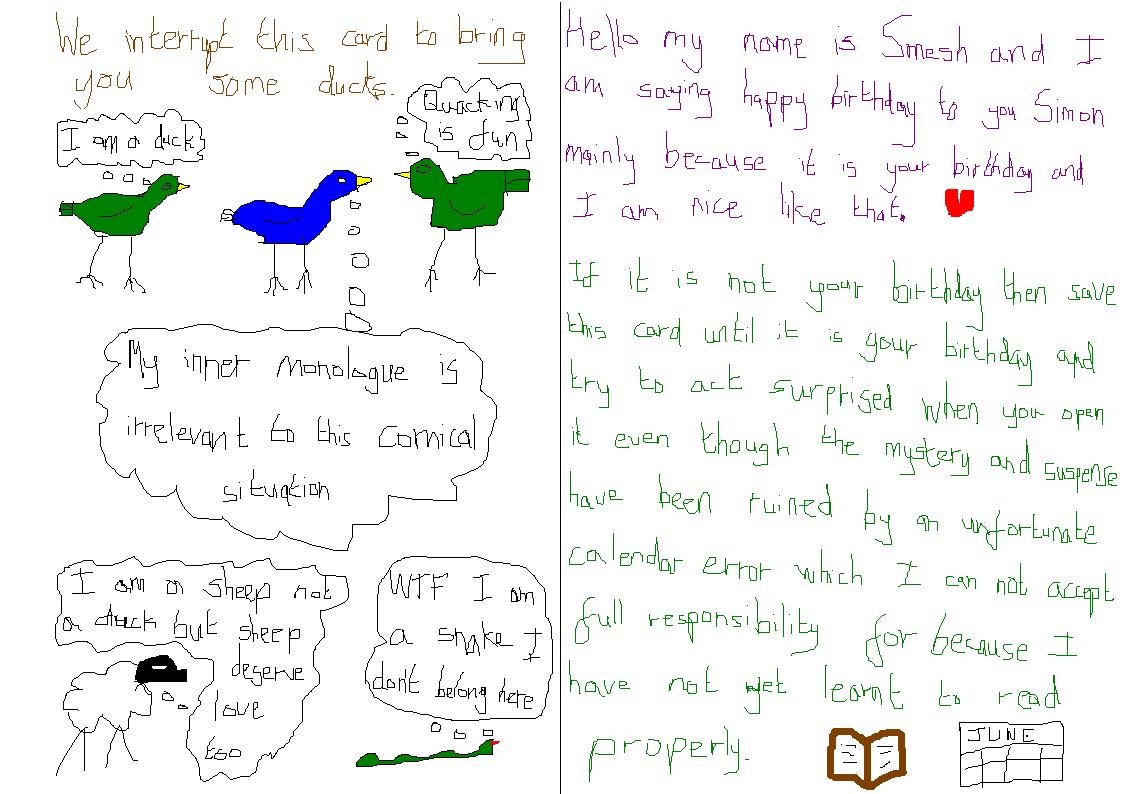 We interrupt this card to bring
you some ducks.
I am a duck
Quacking
is fun
My inner monologue is
irrelevant to this comical
situation
I am a sheep not
a duck but sheep
deserve
love
too
WTF I am
a snake I
dont belong here
Hello my name is Smesh and I
am saying happy birthday to you Simon
mainly because it is your birthday and
I am nice like that.
If it is not your birthday then save
this card until it is your birthday and
try to act surprised when you open
it even though the mystery and suspense
have been ruined by an unfortunate
calendar error which I can not accept
full responsibility for because I
have not yet learnt to read
properly.
JUNE